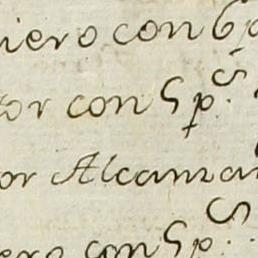 iero con 6 p
tor con 5 p.s
or Alcanza
ero con 5 p.s